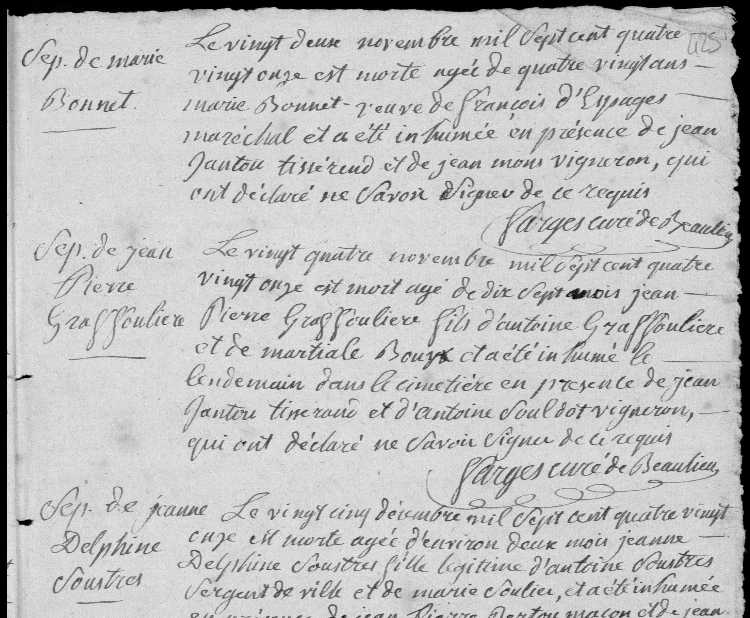 125
Sep. de marie
Bonnet.
Le vingt deux novembre mil Sept cent quatre
vingt onze est morte agée de quatre vingt ans
marie Bonnet veuve de françois d'Espages
maréchal et a été inhumée en présence de jean
Jantou tisserend et de jean mons vigneron, qui
ont déclaré ne Savoir Signer de ce requis
farges curé de Beaulieu
Sep. de jean
Pierre
Graffouliere
Le vingt quatre novembre mil Sept cent quatre
vingt onze est mort agé de dix Sept mois jean
Pierre Graffouliere fils d'antoine Graffouliere
et de martiale et a été inhumé le
lendemain dans le cimetière en presence de jean
Jantou tisserand et d'antoine Souldot vigneron,
qui ont déclaré ne Savoir Signer de ce requis
farges curé de Beaulieu
Sep. de jeanne
Delphine
Soustres
Le vingt cinq décembre mil Sept cent quatre vingt
onze est morte agée d'environ deux mois jeanne
Delphine Soustres fille legitime d'antoine Soustres
Sergent de ville et de marie Soulier, et a été inhumée
en présence de jean Pierre Bertou maçon et de jean